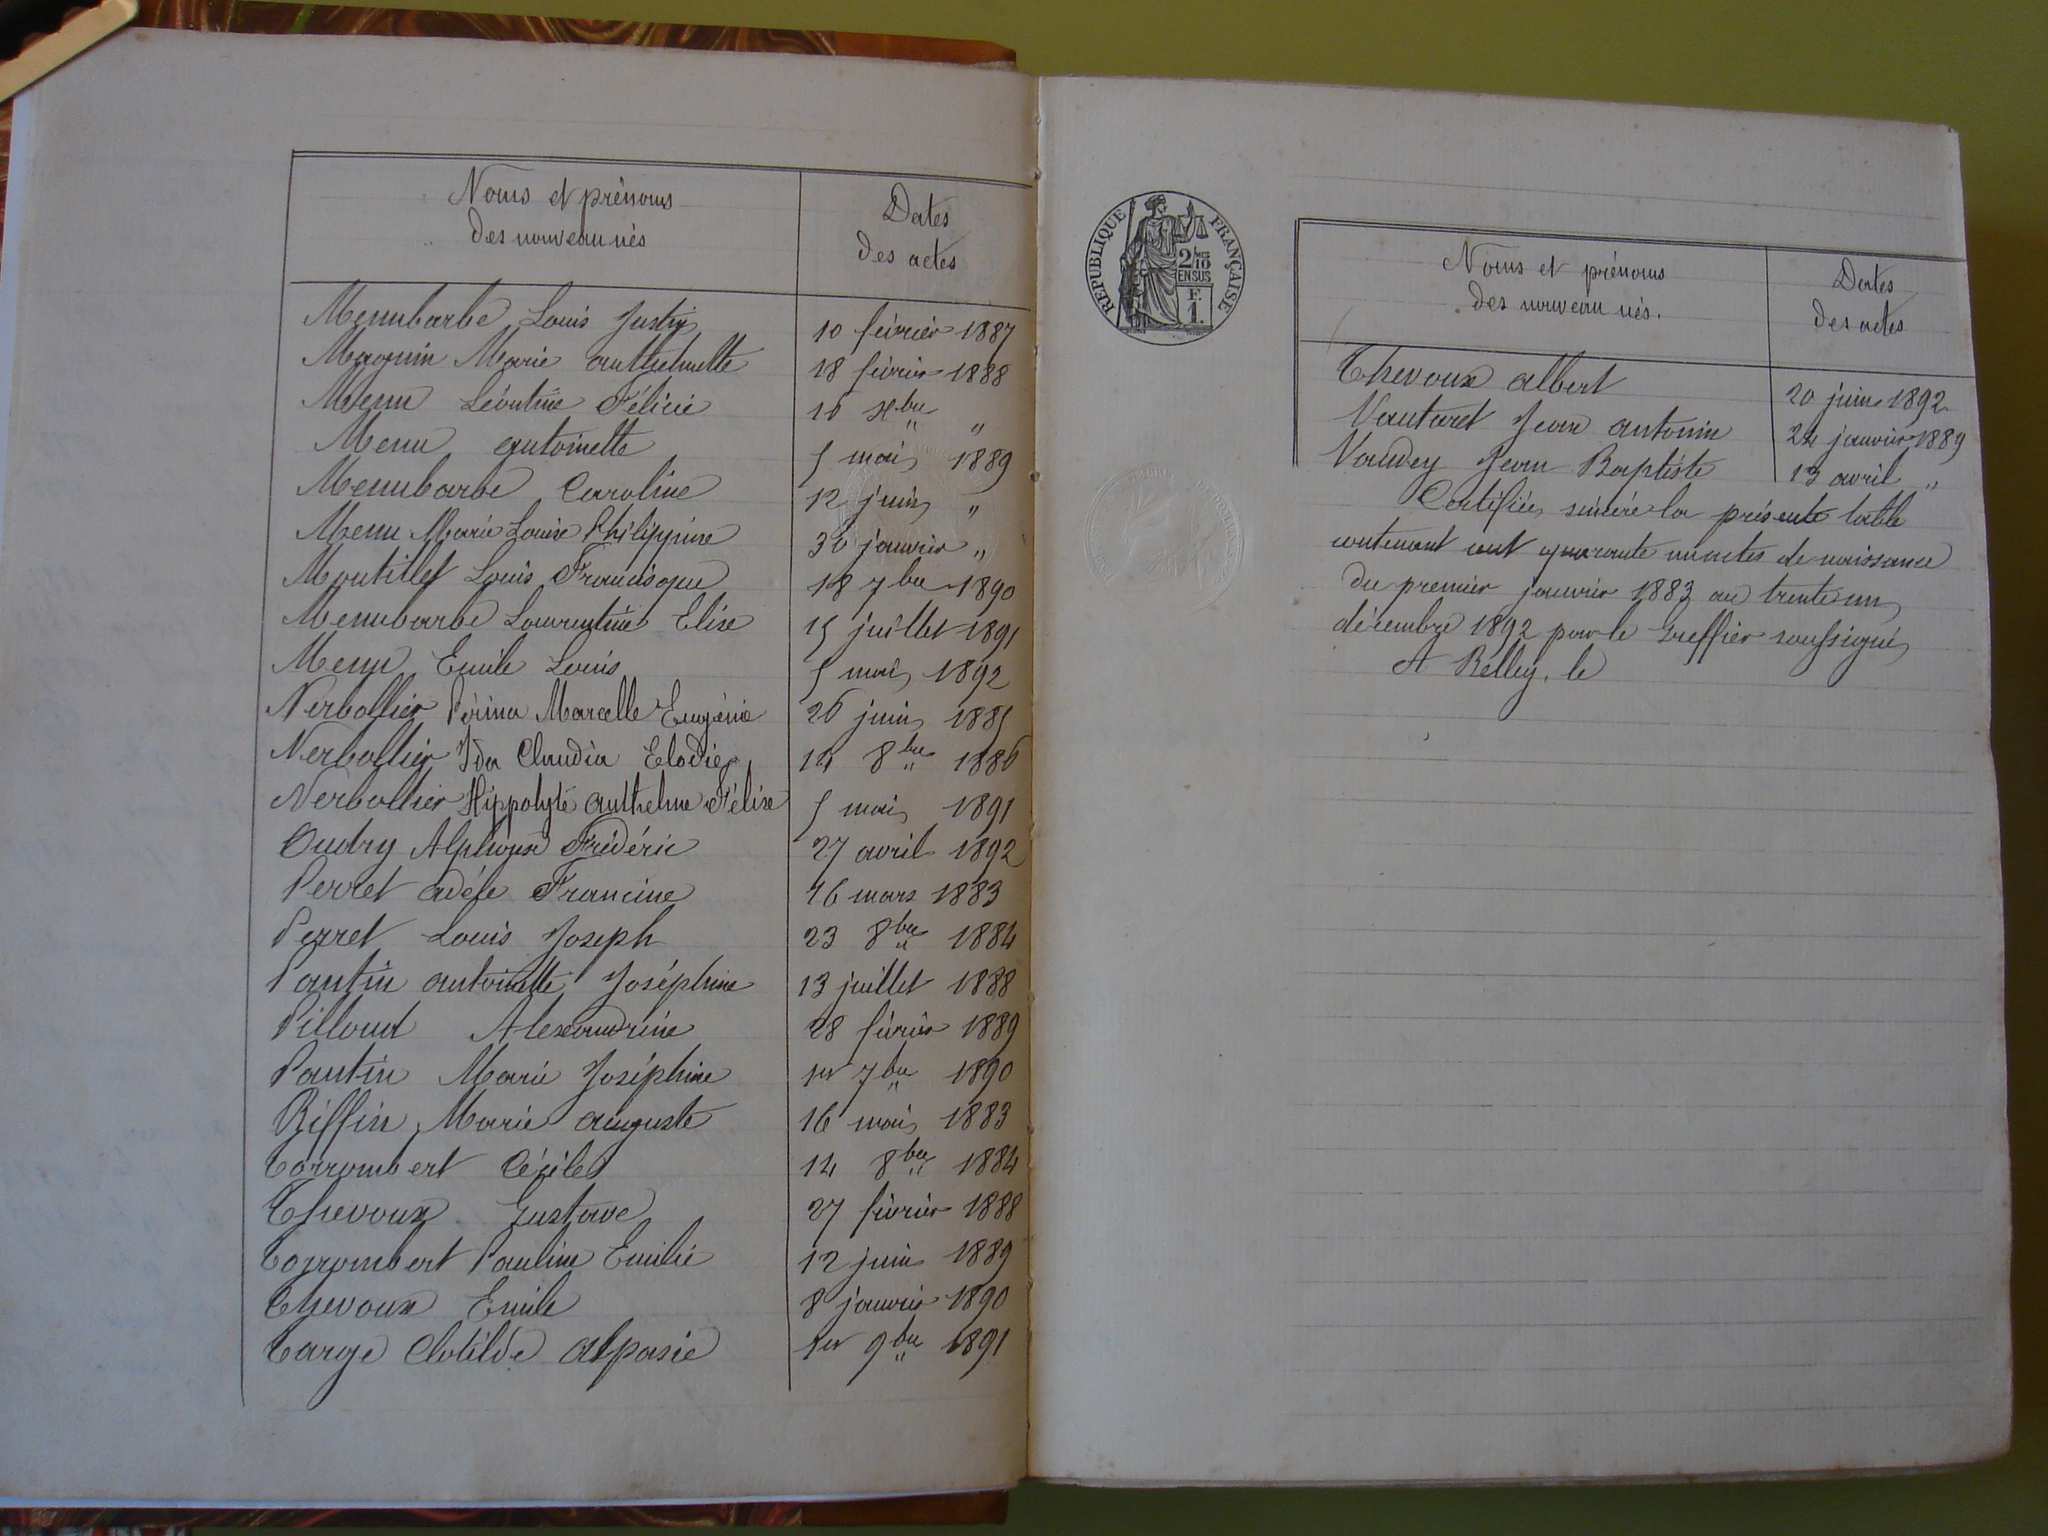 Noms et prénoms
des nouveau nés
Dates
des actes
Menubarbe Louis Justin 10 février 1887
Magnin Marie Anthelmette 18 février 1888
Menu Léontine Félicie 16 Xbre „ „
Menu Antoinette 5 mai 1889
Menubarbe Caroline 12 juin „
Menu Marie Louise Philippine 30 janvier „
Montillet Louis Francisque 18 7bre 1890
Menubarbe Laurentine Elise 15 juillet 1891
Menu Emile Louis 5 mai 1892
Nerbollier Périna Marcelle Eugénie 26 juin 1885
Nerbollier Ida Claudia Elodie 14 8bre 1886
Nerbollier Hippolyte Anthelme Félix 5 mai 1891
Oudry Alphonse Frédéric 27 avril 1892
Perret Adèle Francine 16 mars 1883
Perret Louis Joseph 23 8bre 1884
Pantin Antoinette Joséphine 13 juillet 1888
Pilloud Alexandrine 28 février 1889
Pantin Marie Joséphine 1er 7bre 1890
Riffin Marie Auguste 16 mai 1883
Torrombert Cécile 14 8bre 1884
Thevoux Gustave 27 février 1888
Torrombert Pauline Emilie 12 juin 1889
Thevoux Emile 8 janvier 1890
Targe Clotilde Aspasie 1er 9bre 1891
RÉPUBLIQUE FRANÇAISE
2/10
EN SUS
F.
1.
Noms et prénoms
des nouveau nés.
Dates
des actes
Thevoux Albert 20 juin 1892
Vautaret Jean Antonin 24 janvier 1889
Vaudey Jean Baptiste 13 avril „
Certifiée sincère la présente table
contenant cent quarante minutes de naissance
du premier janvier 1883 au trente un
décembre 1892 par le Greffier soussigné
A Belley, le